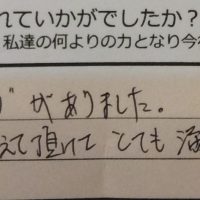 れていかがでしたか？
私達の何よりの力となり今
がありました。
えて頂いて とても 満